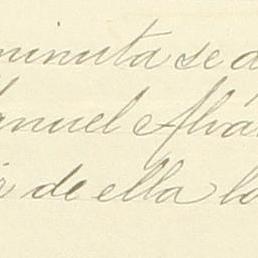 minuta se d
Manuel Alvá
de ella lo